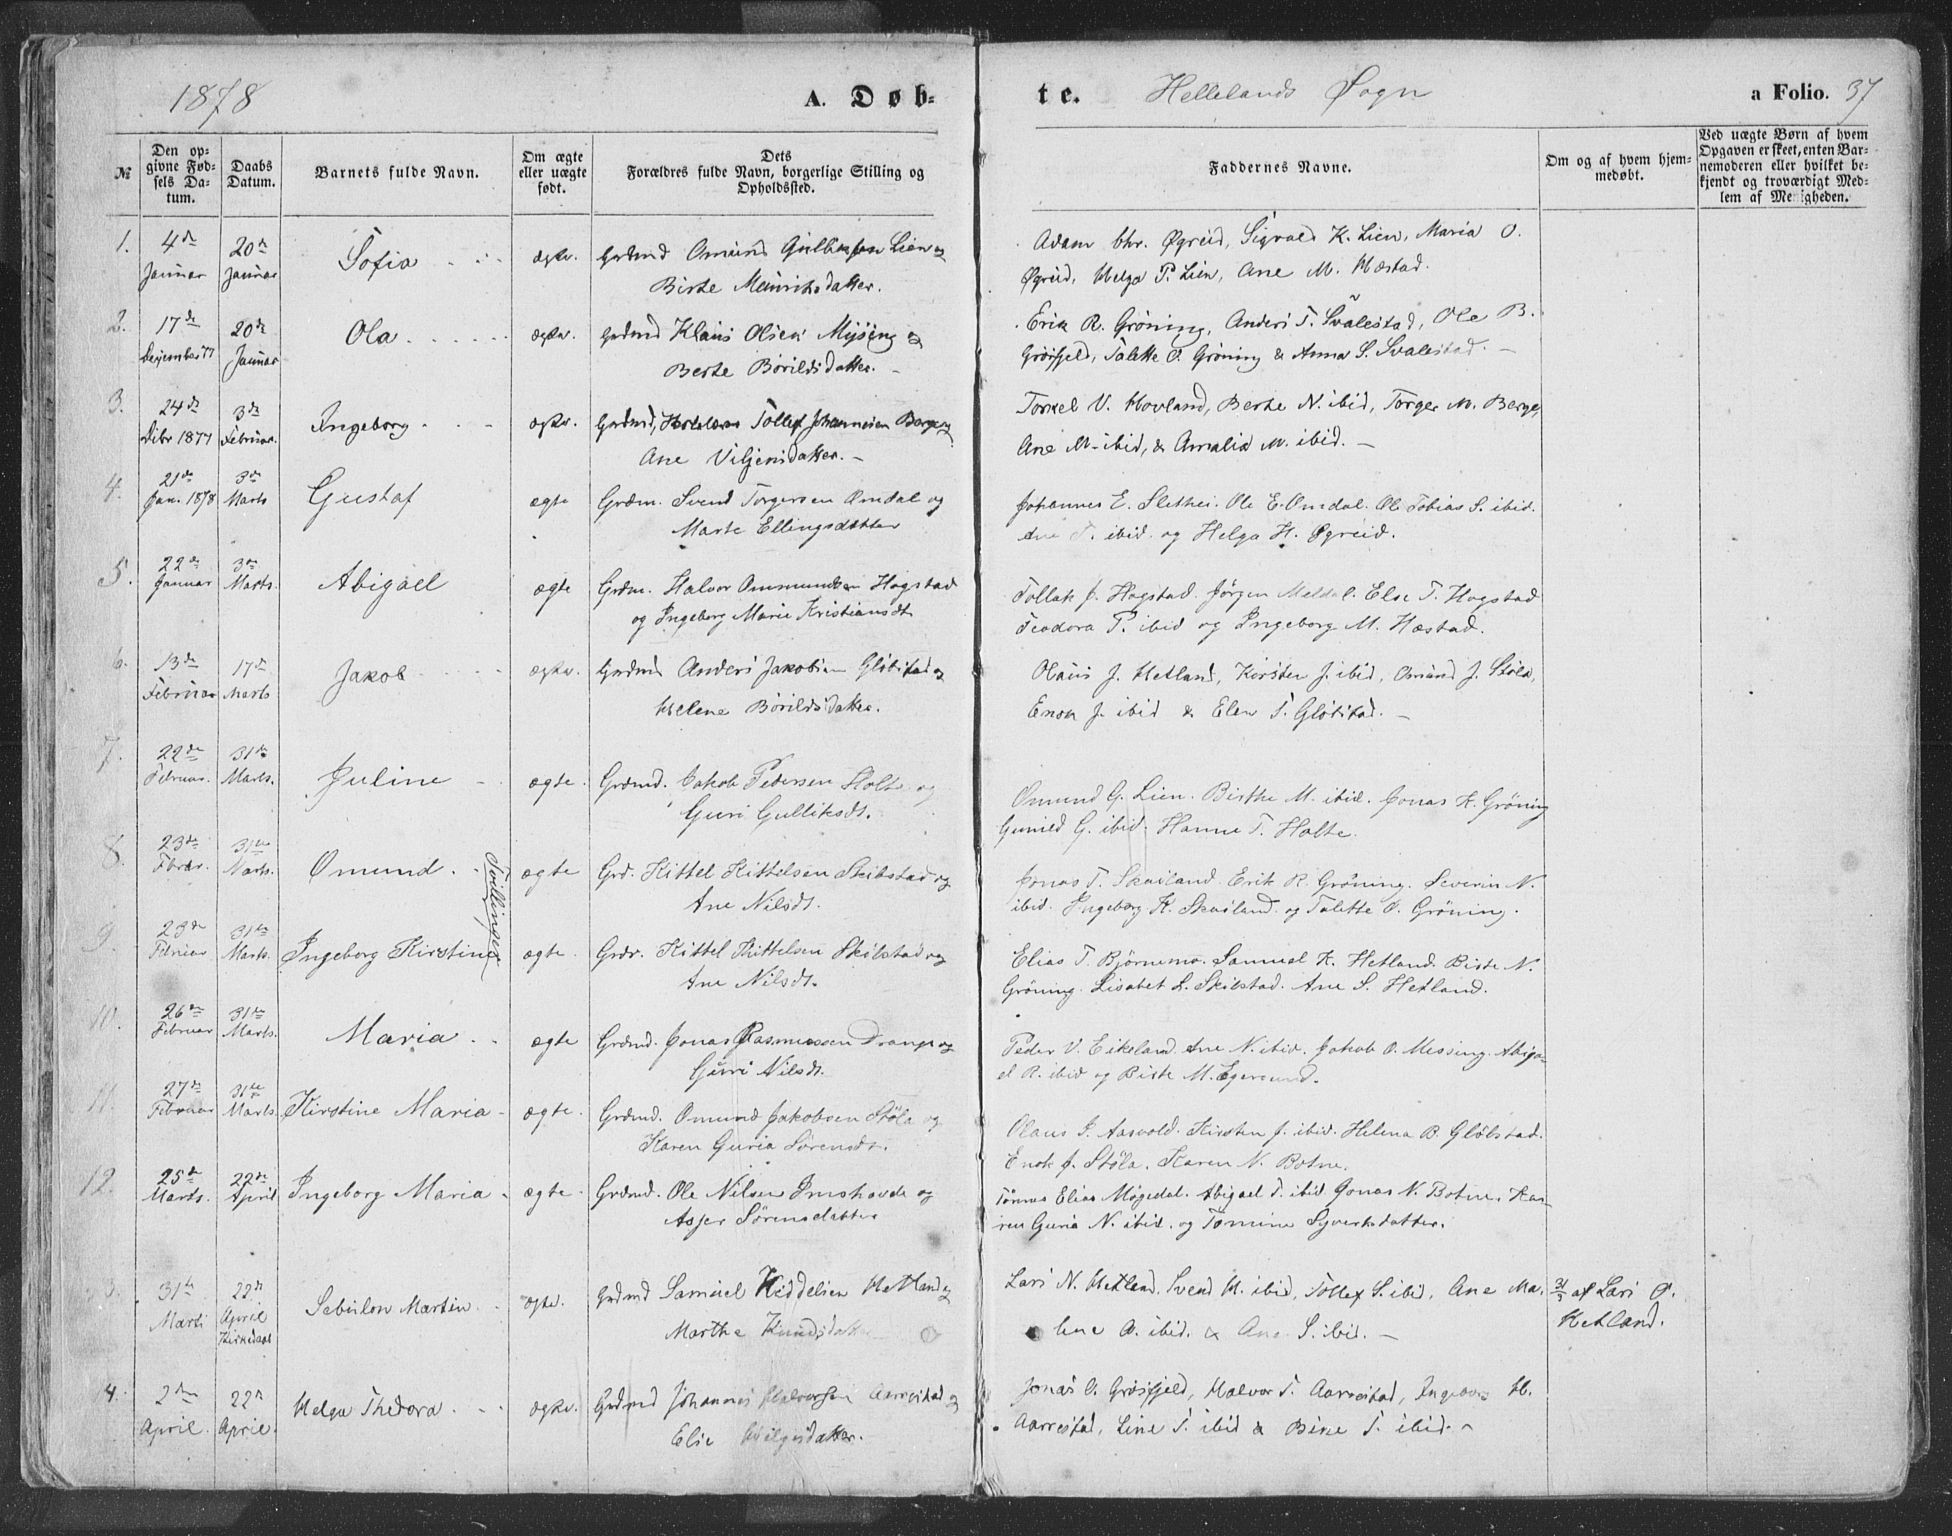 1878 A. Døb-
te. Hellelands Sogn a Folio. 37
№
Den op-
givne Fød-
sels Da-
tum.
Daabs
Datum.
Barnets fulde Navn.
Om ægte
eller uægte
født.
Dets
Forældres fulde Navn, borgerlige Stilling og
Opholdssted.
Faddernes Navne.
Om og af hvem hjem-
medøbt.
Ved uægte Børn af hvem
Opgaven er skeet, enten Bar-
nemoderen eller hvilket be-
kjendt og troværdigt Med-
lem af Menigheden.
1. 4de 20de Sofia ægte. Grdmd Omund Lien og
Januar Januar Birte
Adam Øgreid, Sigvald K. Lien, Maria O.
Øgreid, Helga P. Lien, Ane M. Hæstad.
2. 17de 20de Ola ægte. Grdmd Klaus Olsen Mysing og
December 77 Januar Berte Børildsdatter.
Erik R. Grøning, Anders T. Svalestad, Ole B.
Grøsfjeld, Talette O. Grøning & Anna S. Svalestad.
3. 24de 3de Ingeborg ægte. Grdmd, Tollef Johannesen Berge og
Dcbr 1877 Februar. Ane Viljemsdatter.
Torkel V. Hovland, Berte N. ibid, Torger M. Berge,
Ane M. ibid, & Amalia M. ibid.
4. 21de 3de Gustaf ægte Grdm. Svend Torgersen Omdal og
Jan. 1878 Marts Marte Ellingsdatter
Johannes E. Slethei. Ole E. Omdal. Ole Tobias S. ibid.
Ane T. ibid. og Helga H. Øgreid.
5. 22de 3de Abigael ægte Grdm. Halvor Ommundsen Hogstad
Januar Marts. og Ingeborg Marie Kristiansdt.
Tollak J. Hogstad. Jørgen Meldal. Else T. Hogstad
Teodora T. ibid og Ingeborg M. Hæstad.
6. 13de 17de Jakob ægte. Grdmd Anders Jakobsen Gløbstad og
Februar Marts Helene Børildsdatter.
Olaus J. Hetland, Kirsten J. ibid, Omund J. Støla,
Enok J. ibid & Elen T. Gløbstad.
7. 22de 31te Juline ægte. Grdmd. Jakob Pedersen Holte og
Februar. Marts. Guri Gulliksdt.
Omund G. Lien. Birthe M. ibid. Jonas K. Grøning
Gunild G. ibid. Hanne T. Holte.
8. 23de 31te Omund. Tvillinger ægte Grd. Kittel Kittelsen Skibstad og
Fbrar. Marts. Ane Nilsdt.
Jonas T. Skailand. Erik R. Grøning. Severin N.
ibid. Ingeborg K. Skailand. og Talette O. Grøning.
9. 23de 31te Ingeborg Kirstine ægte. Grdr. Kittel Kittelsen Skibstad og
Februar Marts. Ane Nilsdt.
Elias T. Bjørnemo. Samuel K. Hetland. Birte N.
Grøning. Lisabet L. Skibstad. Ane S. Hetland.
10. 26de 31te Maria ægte Grdmd. Jonas Rasmussen Drange og
Februar Marts. Guri Nilsdt.
Peder V. Eikeland. Ane N. ibid. Jakob O. Messing. Abiga-
el R. ibid og Birte M. Egersund.
11. 27de 31te Kirstine Maria ægte. Grdmd. Omund Jakobsen Støla og
Februar Marts. Karen Guria Sørensdt.
Olaus J. Aasvold. Kirsten J. ibid. Helena B. Gløbstad.
Enok J. Støla. Karen N. Botne.
12. 25de 22de Ingeborg Maria ægte Grdmd. Ole Nilsen Imshovde og
Marts. April Asjer Sørensdatter
Tønnes Elias Møgedal. Abigael T. ibid. Jonas N. Botne. Ka-
ren Guria N. ibid. og Tomine Syvertsdatter.
31te 22de Sebulon Martin ægte. Grdmd Samuel Kiddelsen Hetland og
Marts April Kirkedaab Marthe Knudsdatter
Lars N. Hetland, Svend H. ibid, Tollef S. ibid, Ane Ma-
lene O. ibid. & Ane S. ibid.
31/3 af Lars O.
Hetland.
14. 2den 22de Helga Thedora ægte. Grdmd Johannes Halvorsen Aarrestad og
April. April. Else
Jonas O. Grøsfjeld, Halvor T. Aarrestad, Ingeborg H.
Aarrestad, Line T. ibid & Bine T. ibid.